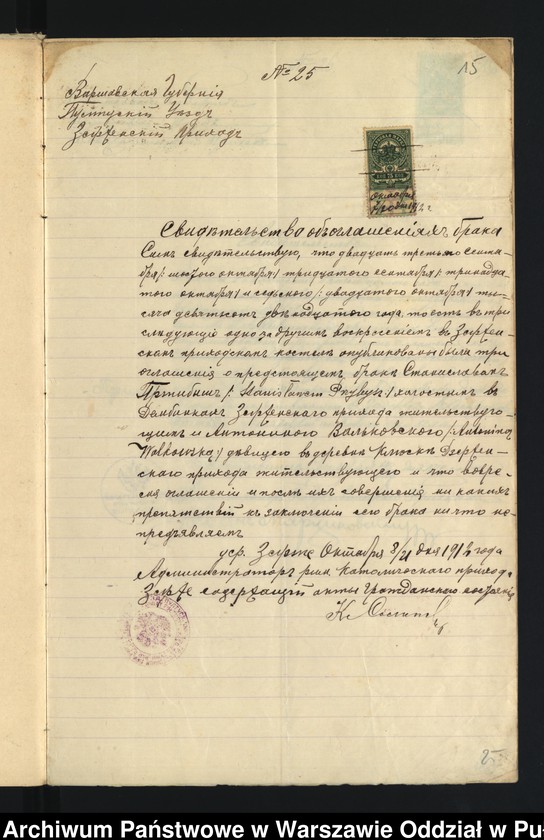 № 25
15
Варшавская Губернія
Пултускій Уездъ
Зегрженскій Приходъ
октября
1912 г
Свидѣтельство объ оглашеніяхъ брака
Симъ свидѣтельствую, что двадцать третьяго сентя-
бря /: шестого октября :/ тридцатого сентября /: тринадца-
того октября :/ и седьмого /: двадцатого октября :/ ты-
сяча девятсотъ двѣнадцатого года, то есть въ три
слѣдующіе одно за другимъ воскресеніемъ въ Зегржен-
скомъ приходскомъ костелѣ опубликованы были три
оглашенія о предстоящемъ бракѣ Станиславомъ
/: Stanisławem :/ холостымъ въ
Дембинкахъ Зегрженскаго прихода жительствую-
щимъ и Антониною Вальковского /: Antoniną
:/ дѣвицего въ деревнѣ прихода жительствующего и что во вре-
мя оглашеній и послѣ ихъ совершенія ни какихъ
препятствій къ заключенію сего брака ни что не
предъявляемъ
Зегрже Октября 8/21 дня 1912 года
Администраторъ рим. Католическаго прихода
Зегрже содержащій акты Гражданскаго состоянія
25
Archiwum Państwowe w Warszawie Oddział w Pu